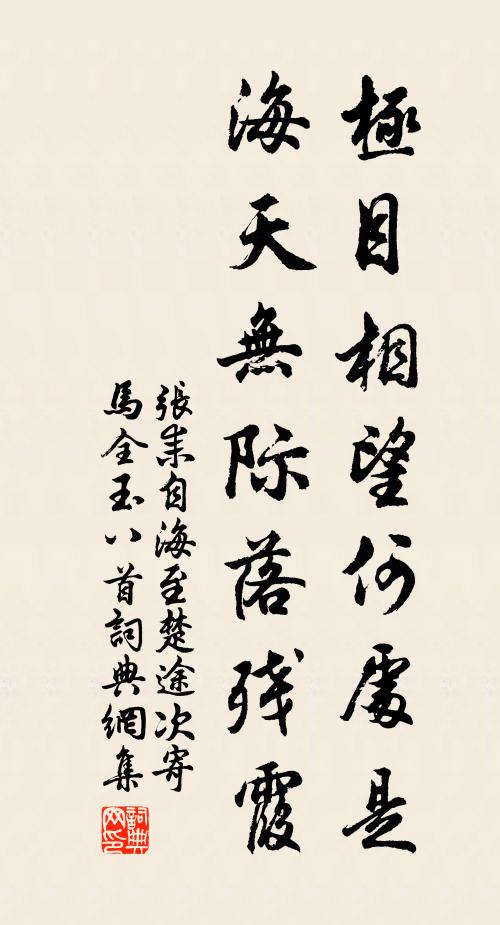 極目相望何處是
海天無际落残霞
張耒自海至楚途次寄
馬全玉八首詞典網集
詞典
网印